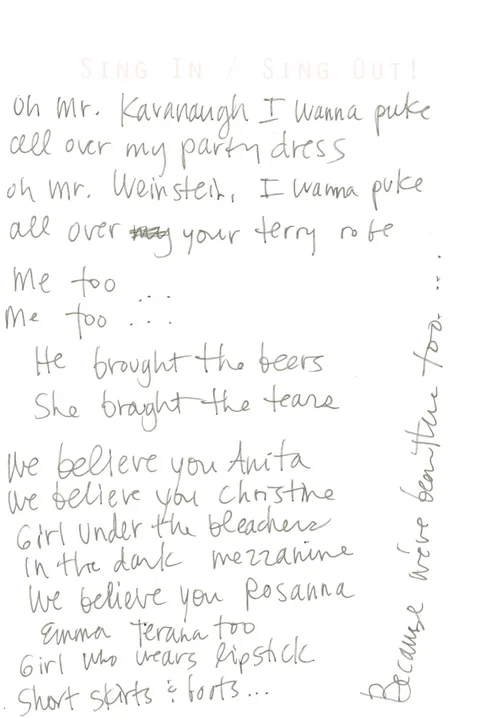 SING IN / SING OUT!
Oh Mr. Kavanaugh I wanna puke
all over my party dress
oh mr. Weinstein, I wanna puke
all over my your terry robe
Me too ...
Me too ...
He brought the beers
She brought the tears
We believe you Anita
We believe you Christine
Girl under the bleachers
In the dark mezzanine
We believe you Rosanna
Emma Terana too
Girl who wears lipstick
Short skirts & boots...
Because we've been there too. ...